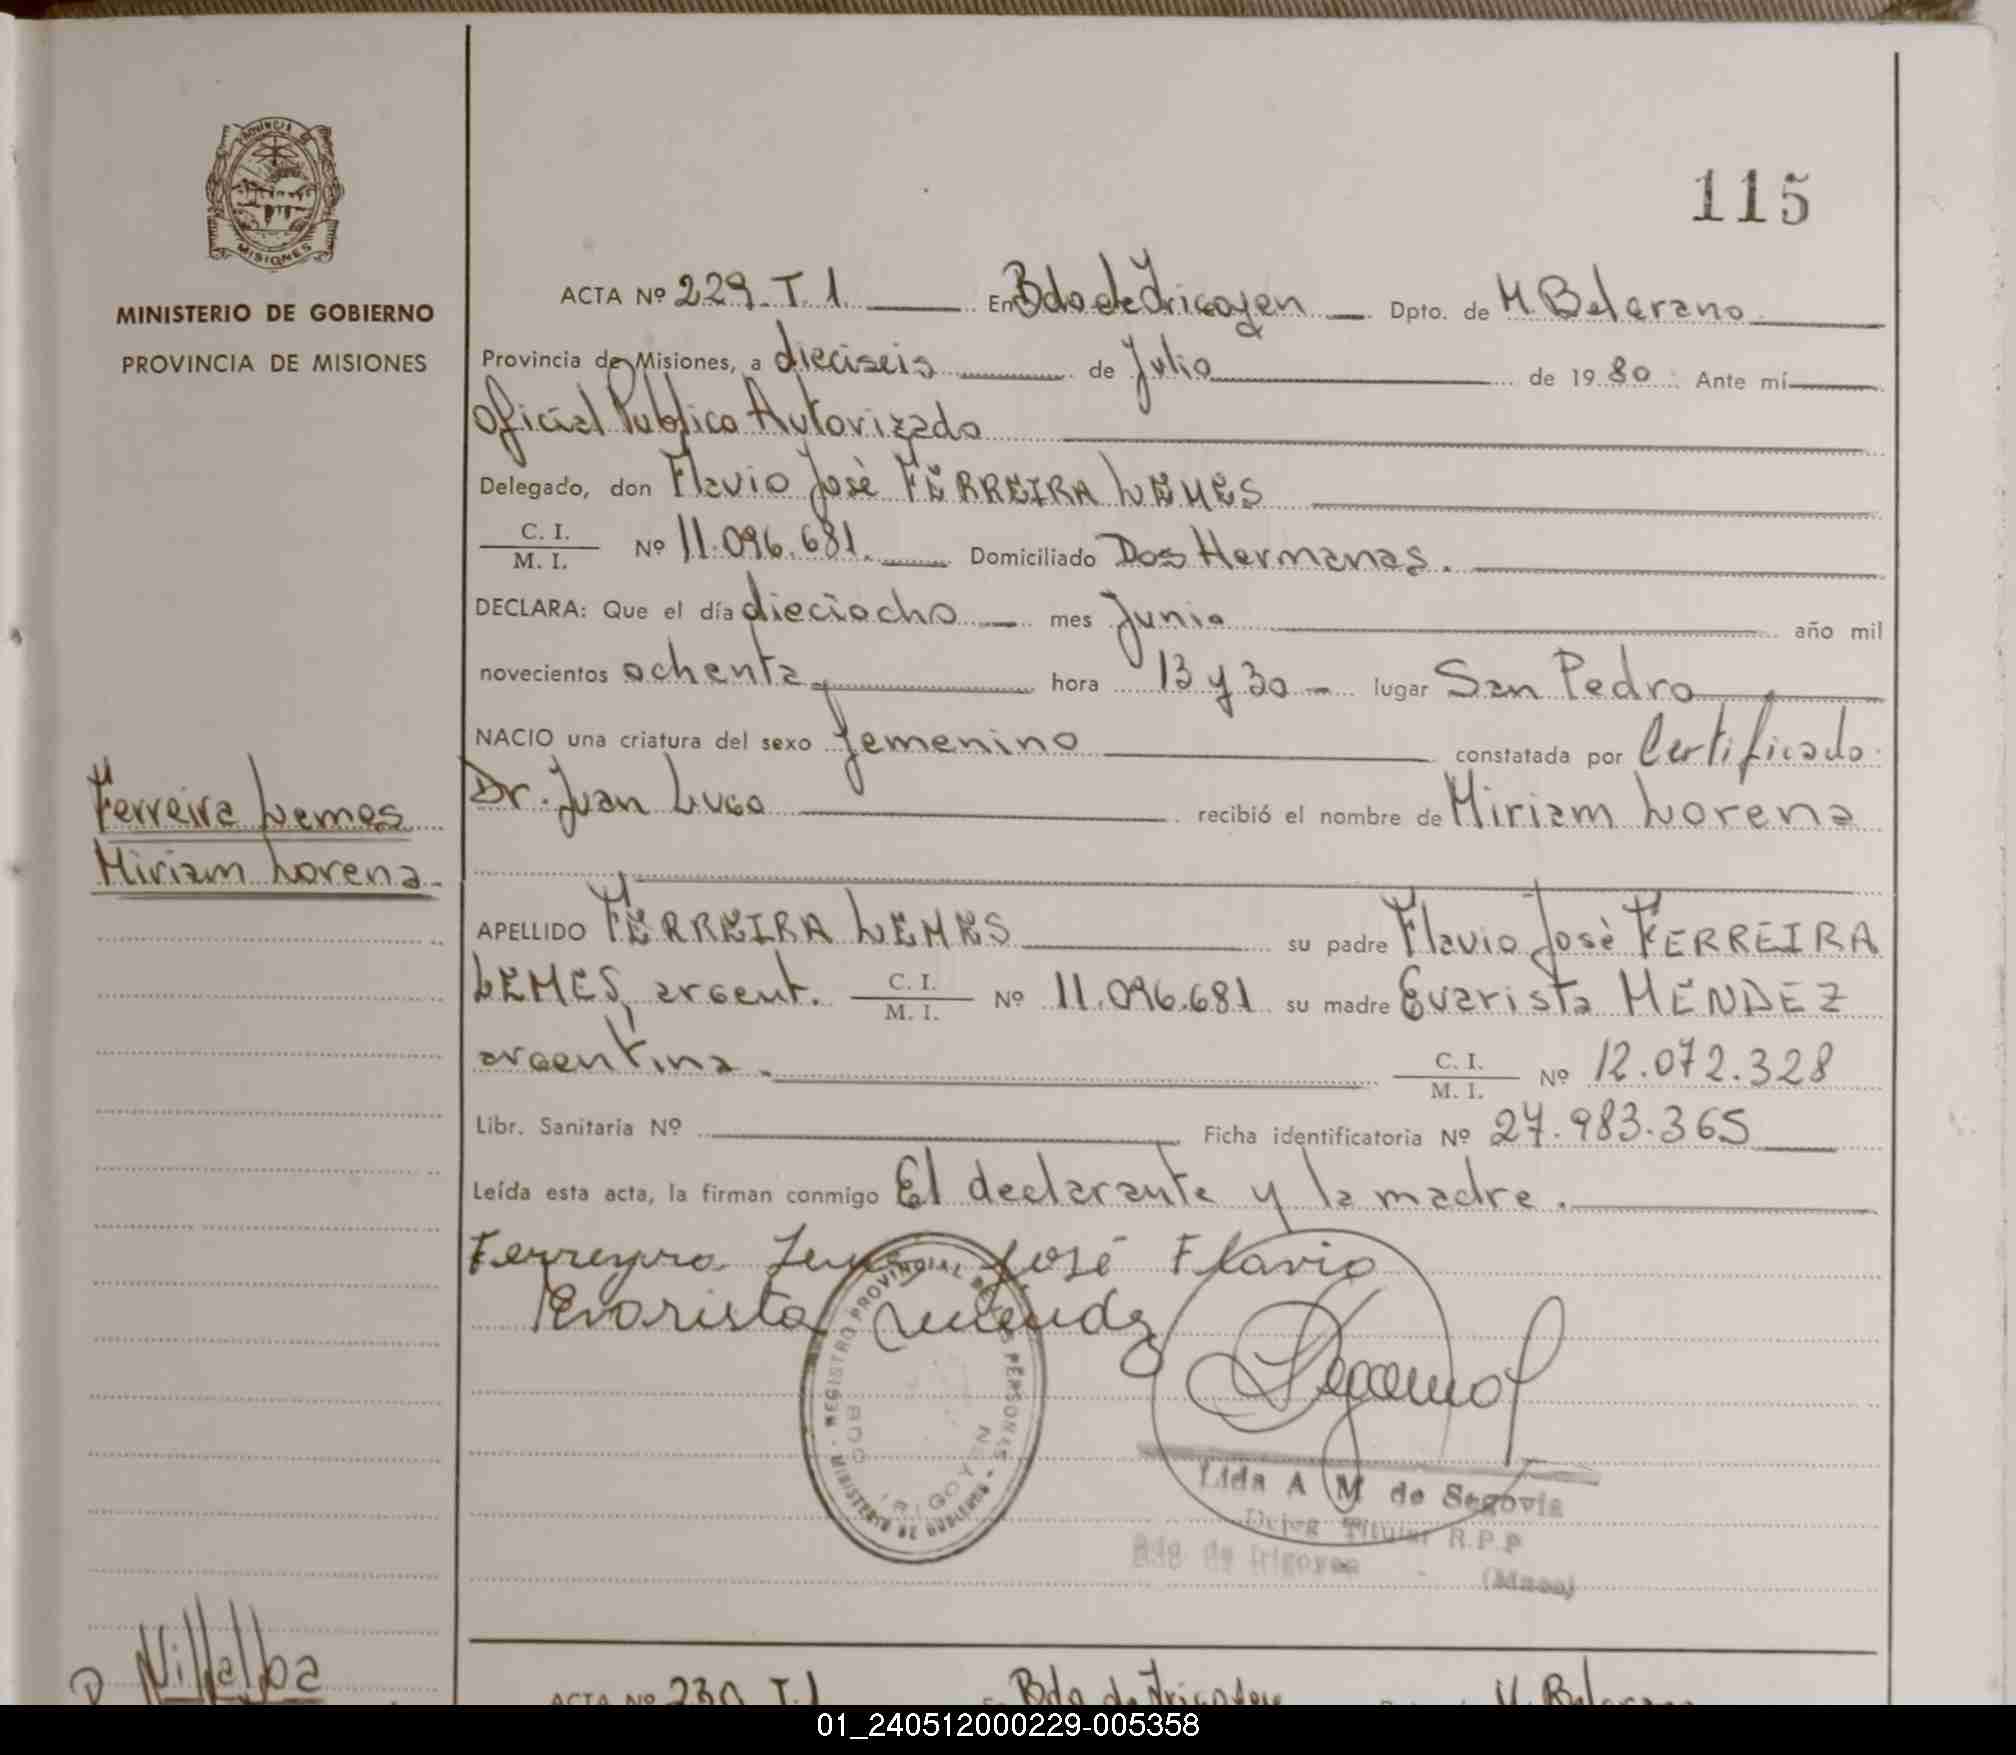 115
PROVINCIA DE
MISIONES
MINISTERIO DE GOBIERNO
PROVINCIA DE MISIONES
ACTA Nº 229 T. 1. En Bdo de Irigoyen Dpto. de M. Belgrano
Provincia de Misiones, a dieciseis de Julio de 19 80 Ante mí
Oficial Publico Autorizado
Delegado, don Flavio Josè FERREIRA LEMES
C. I.
M. I. Nº 11.096.681. Domiciliado Dos Hermanas.
DECLARA: Que el día dieciocho mes Junio año mil
novecientos ochenta, hora 13 y 30 lugar San Pedro
NACIO una criatura del sexo femenino constatada por Certificado
Dr. Juan Lugo recibió el nombre de Miriam Lorena
Ferreira Lemes
Miriam Lorena
APELLIDO FERREIRA LEMES su padre Flavio Josè FERREIRA
LEMES, argent. C. I.
M. I. Nº 11.096.681 su madre Evarista MENDEZ
argentina. C. I.
M. I. Nº 12.072.328
Libr. Sanitaria Nº Ficha identificatoria Nº 27.983.365
Leída esta acta, la firman conmigo El declarante y la madre.
Ferreyra José Flavio
Evarista Méndez
REGISTRO PROVINCIAL DE LAS PERSONAS
MINISTERIO DE GOBIERNO
BDO IRIGOYEN
Lida A M de Segovia
Deleg Titular R.P.P
Bdo de Irigoyen (Mnes)
Villalba
ACTA Nº 230 T.1 En Bdo de Irigoyen M. Belgrano
01_240512000229-005358